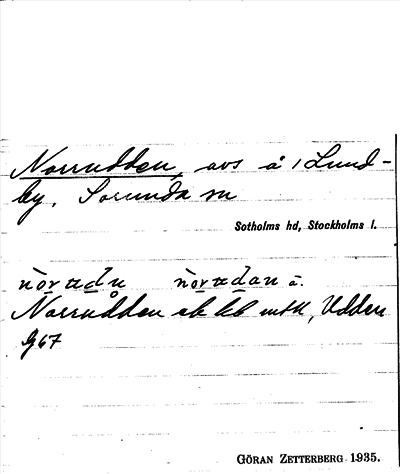 Norrudden, avs å 1 Lund-
by, Sorunda sn
Sotholms hd, Stockholms l.
Norrudden ek kb mtk, Udden
G67
GÖRAN ZETTERBERG 1935.